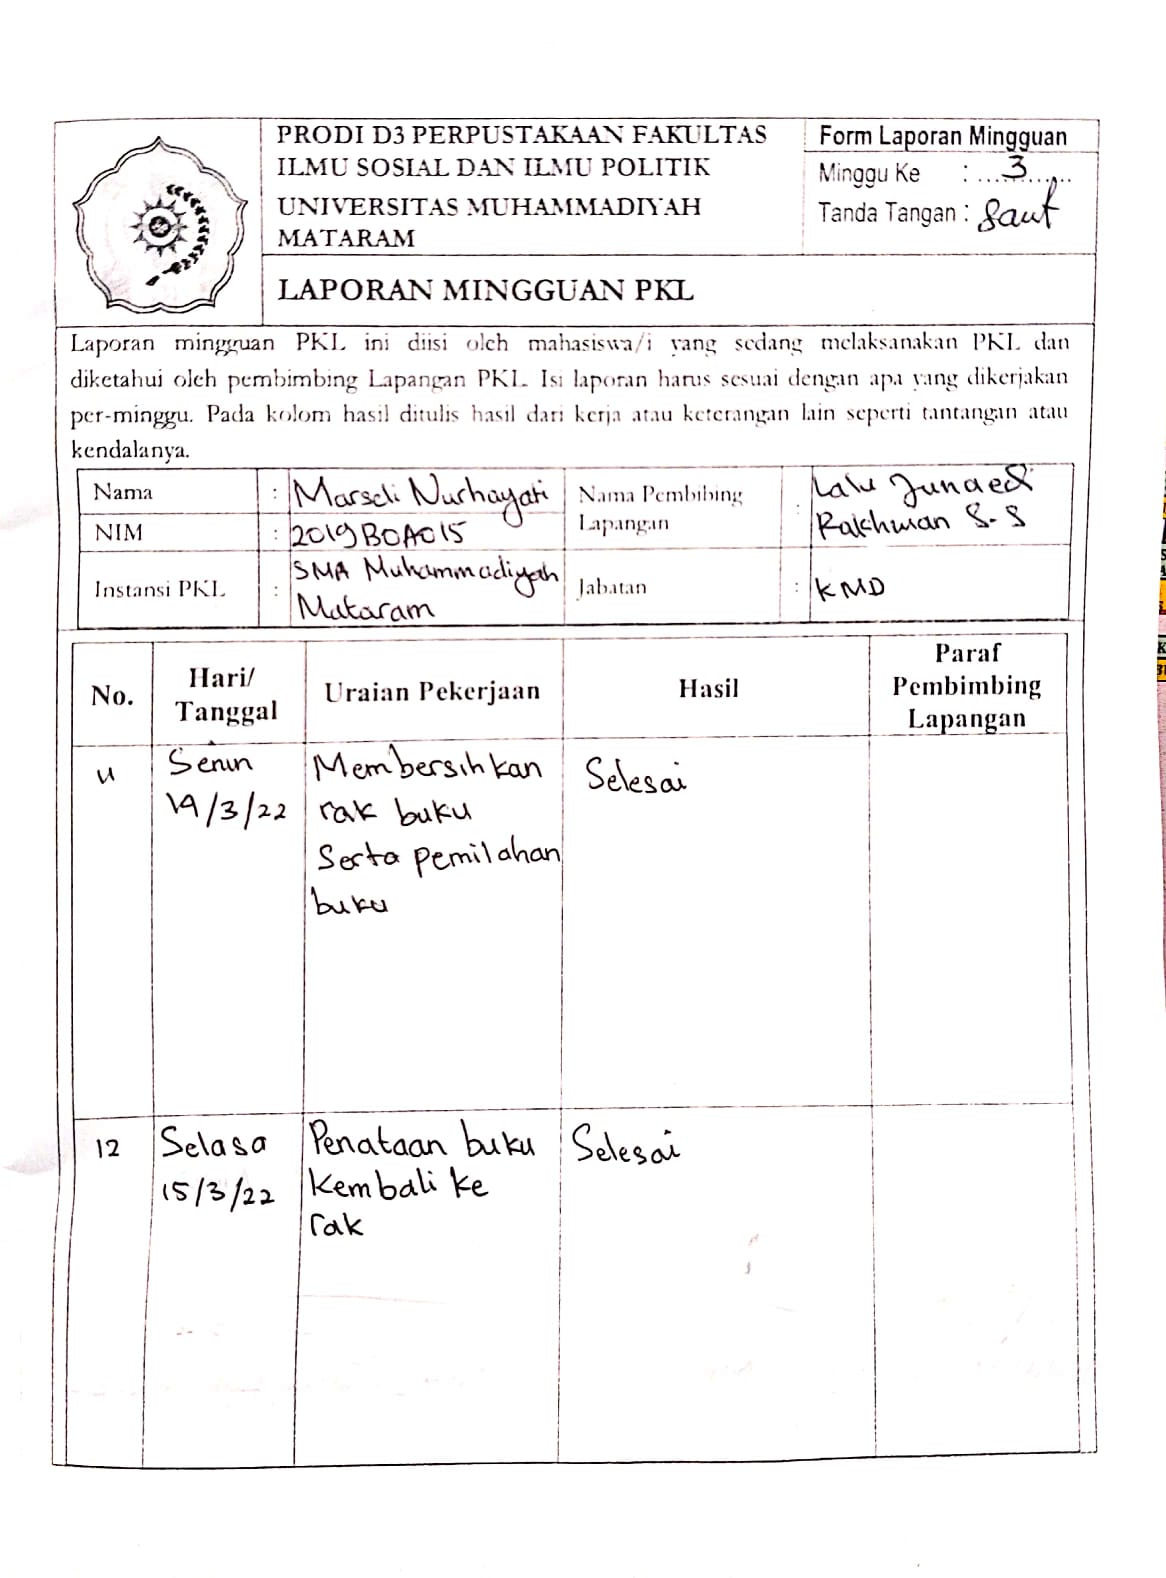 PRODI D3 PERPUSTAKAAN FAKULTAS
ILMU SOSIAL DAN ILMU POLITIK
UNIVERSITAS MUHAMMADIYAH
MATARAM
Form Laporan Mingguan
Minggu Ke : ....3.......
Tanda Tangan :
LAPORAN MINGGUAN PKL
Laporan mingguan PKL ini diisi oleh mahasiswa/i yang sedang melaksanakan PKL dan
diketahui oleh pembimbing Lapangan PKL. Isi laporan harus sesuai dengan apa yang dikerjakan
per-minggu. Pada kolom hasil ditulis hasil dari kerja atau keterangan lain seperti tantangan atau
kendalanya.
Nama : Marseli Nurhayati
NIM : 2019B0A015
Instansi PKL : SMA Muhammadiyah
Mataram
Nama Pembibing
Lapangan
: Lalu Junaedi
Rakhman S.S
Jabatan : KMD
No.
Hari/
Tanggal
Uraian Pekerjaan
Hasil
Paraf
Pembimbing
Lapangan
11
Senin
14/3/22
Membersihkan
rak buku
Serta pemilahan
buku
Selesai
12
Selasa
15/3/22
Penataan buku
kembali ke
rak
Selesai